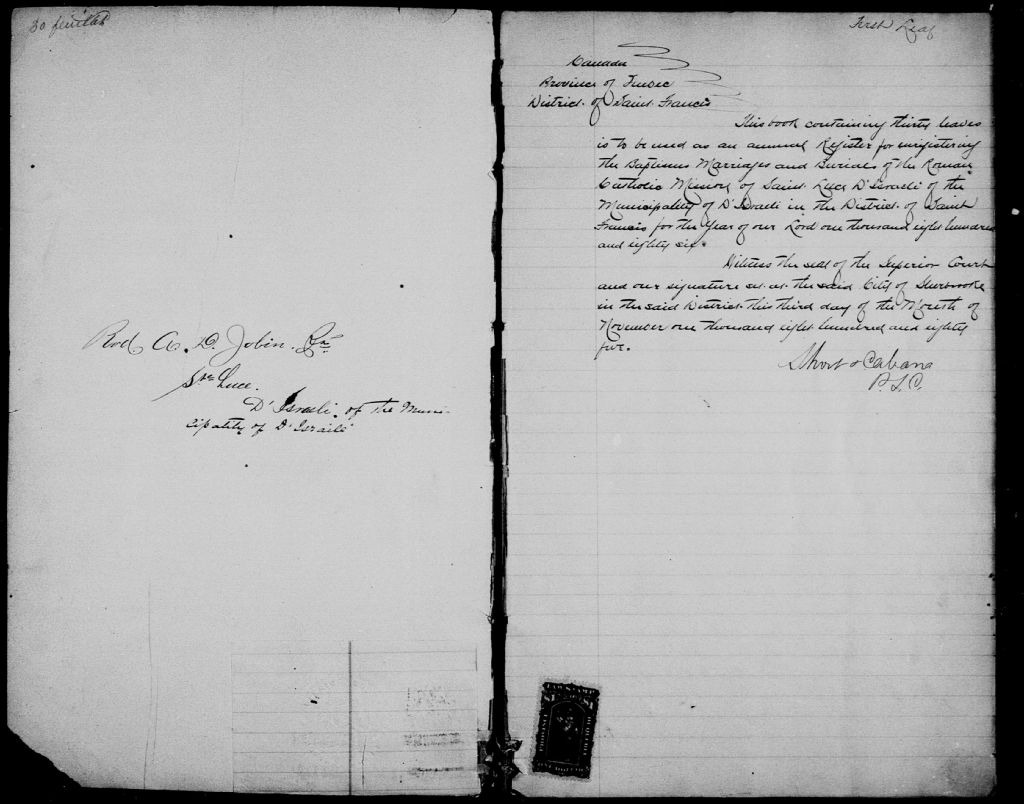 30 feuillets
Rod A. L. Jobin. Ptr
Ste Luce.
D'Israeli. of the Muni-
cipality of D'Israeli
First Leaf
Canada
Province of Quebec
District of Saint Francis
This book containing thirty leaves
is to be used as an annual Register for enregistering
the Baptisms Marriages and Burials of the Roman
Catholic Mission of Saint Luce D'Israeli of the
Municipality of D'Israeli in the District of Saint
Francis for the Year of our Lord one thousand eight hundred
and eighty six.
Witness the seal of the Superior Court
and our signature set at the said City of Sherbrooke
in the said District this third day of the Month of
November one thousand eight hundred and eighty
five.
Short & Cabana
P.S.C.
LAW STAMP
$1 $1
PROVINCE
ONE DOLLAR